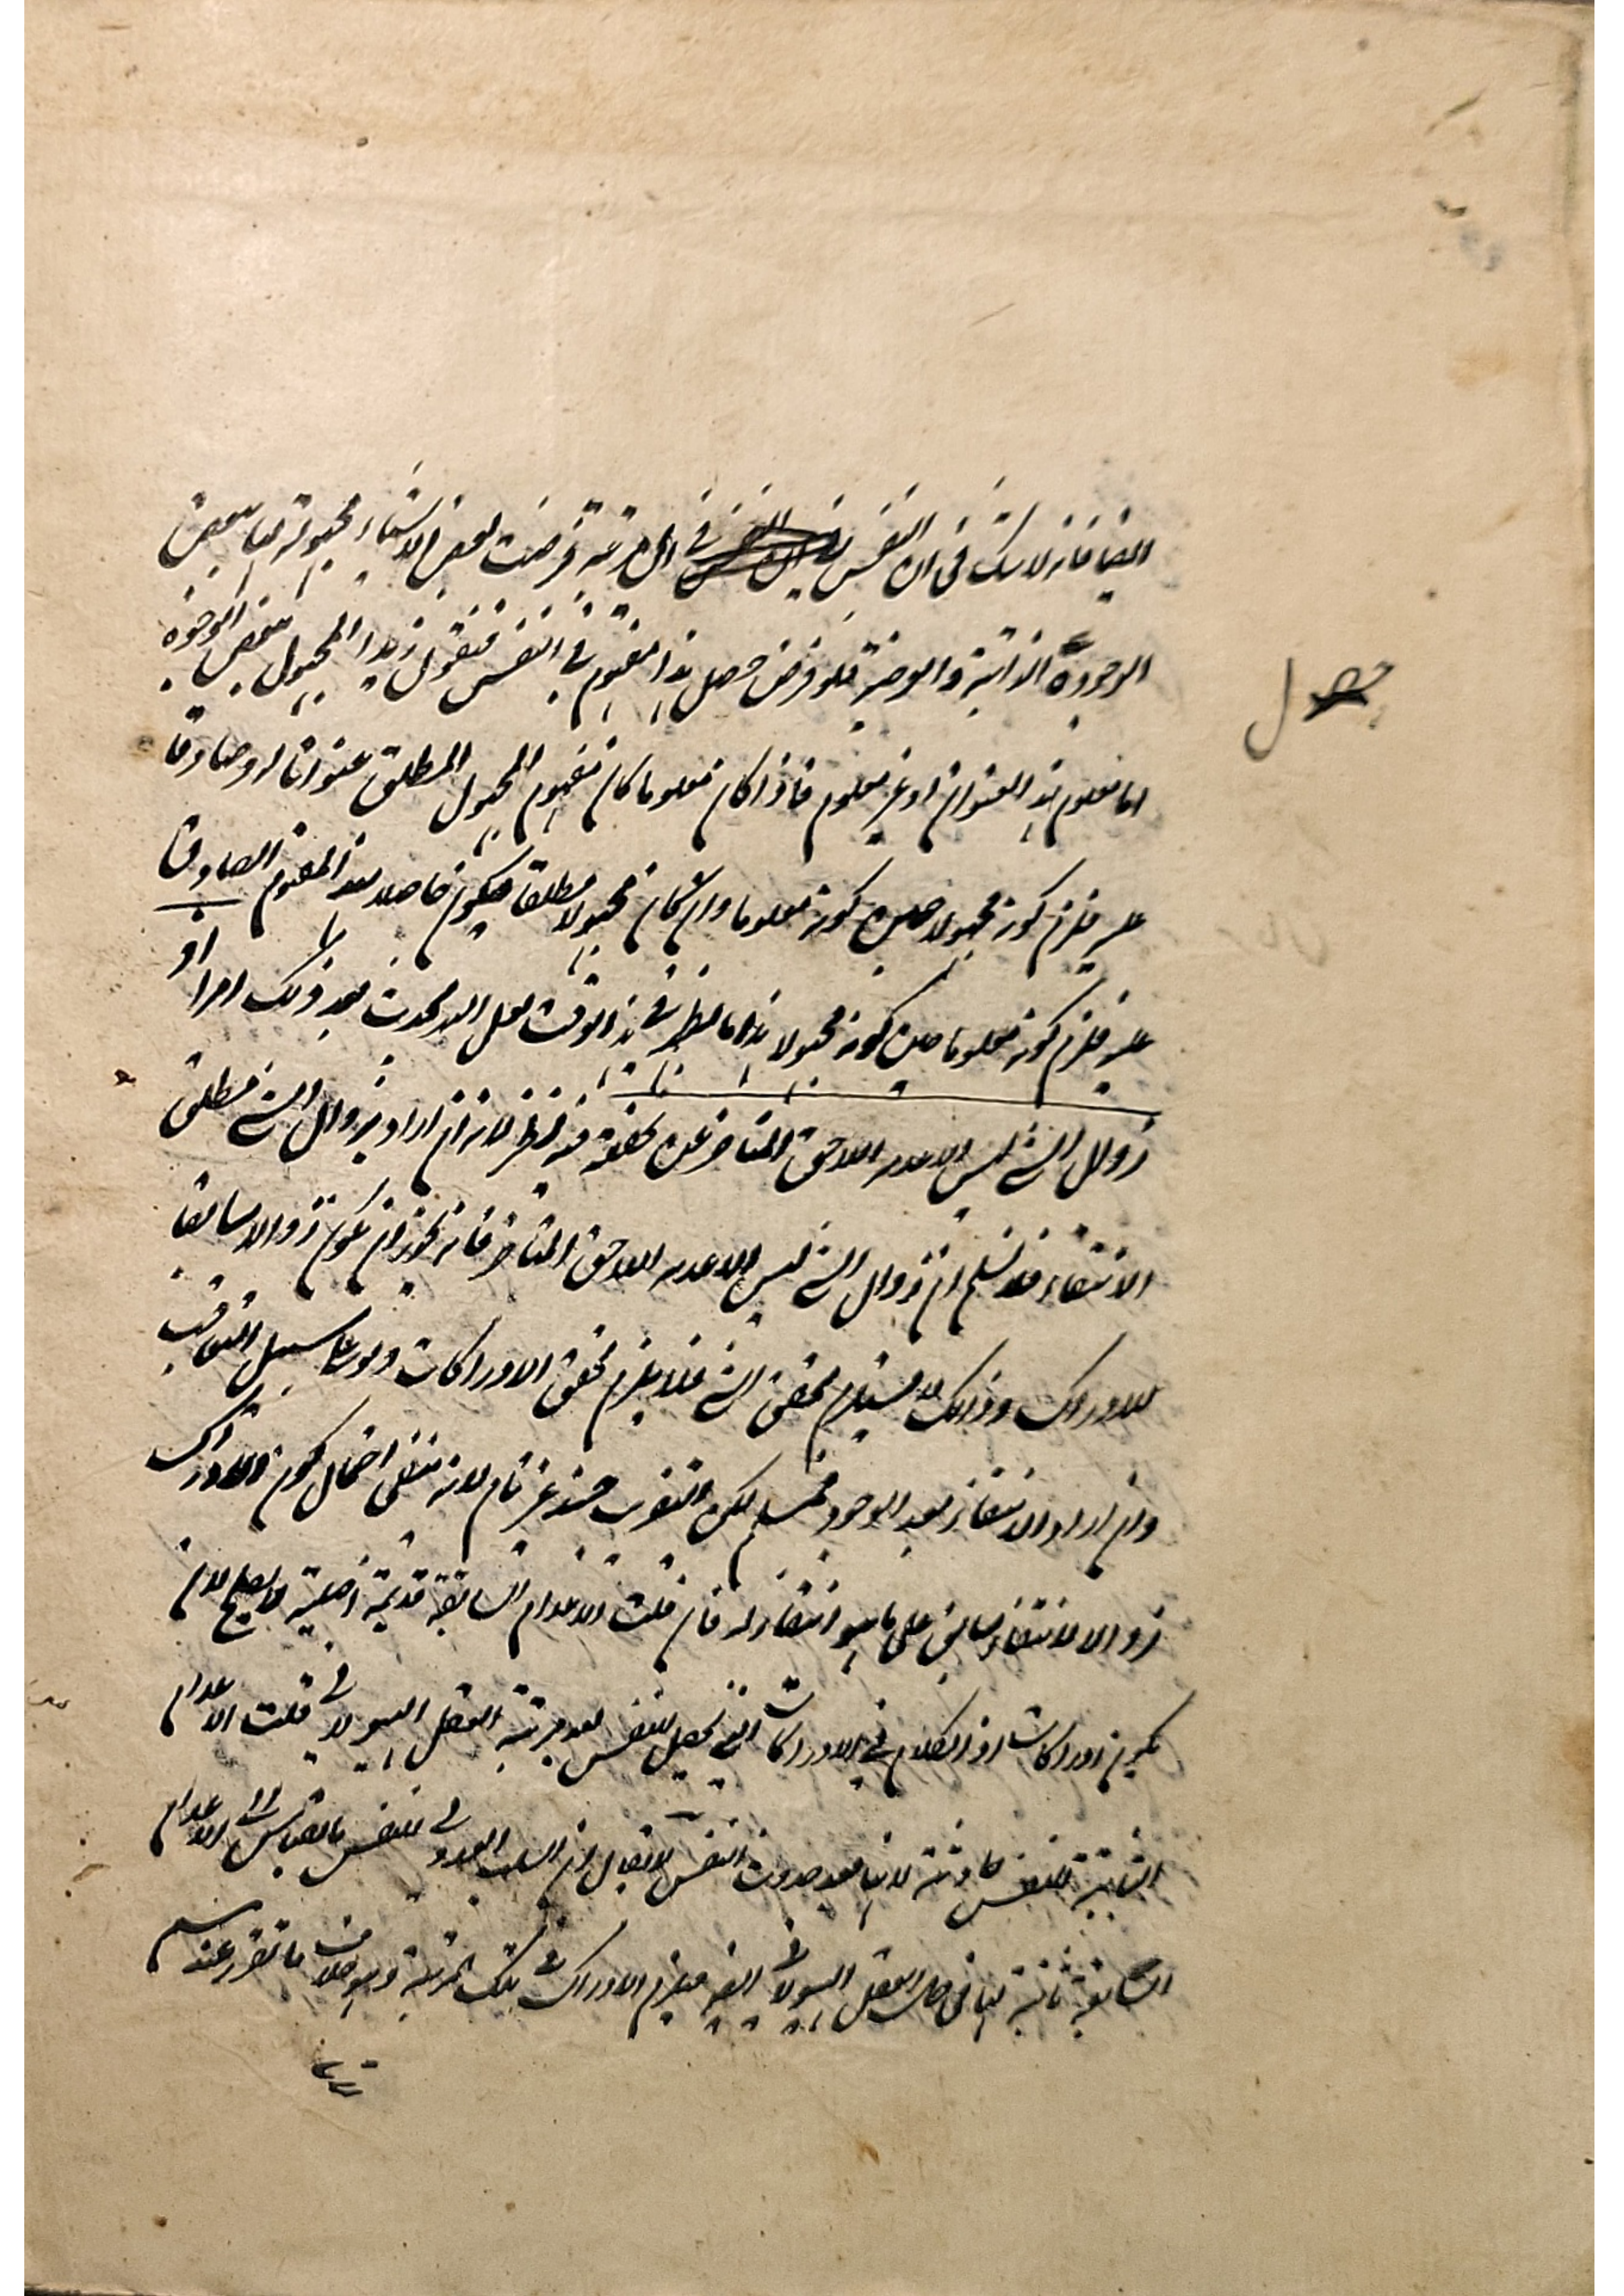 ايضا فانه لا شك فى ان النفس فى اى مرتبة فرضت بعض الاشياء مجهولة لها ببعض
الوجوه الذاتية والعرضية فلو فرض حصل هذا المفهوم فى النفس فنقول زيد المجهول ببعض الوجوه
حصل
اما معلوم بهذا العنوان او غير معلوم فاذا كان معلوما كان مفهوم المجهول المطلق عنوانا له وصادقا
عليه فلزم كونه مجهولا حين كونه معلوما وان كان مجهولا مطلقا فيكون حاصلا بهذا المفهوم الصادق
عليه فلزم كونه معلوما حين كونه مجهولا هذا ما يظهر فى هذا الوقت لعل الله يحدث بعد ذلك امرا
زوال الشئ ليس الا عدمه اللاحق المتاخر عن تحققه فيه نظر لانه ان اراد بزوال الشئ مطلق
الانتفاء فلا نسلم ان زوال الشئ ليس الا عدمه اللاحق المتاخر فانه يجوز ان يكون زوالا سابقا
للادراك وذلك لا يستلزم تحقق الشئ فلا يلزم تحقق الادراكات ولو على سبيل التعاقب
وان اراد الانتفاء بعد الوجود فمسلم لكن التقريب حينئذ غير تام لانه بقى احتمال كون الادراك
زوالا لانتفاء سابق على ما هو انتفاء له فان قلت الاعدام السابقة قديمة اصلية فلا يصلح لان
يكون ادراكات اذ الكلام فى الادراكات التى تحصل للنفس بعد مرتبة العقل الهيولانى قلت الاعدام
الثابتة للنفس حادثة لانها بعد حدوث النفس لا يقال ان السلب العدولى للنفس بالقياس الى الاعدام
السابقة ثابتة لها فى حال العقل الهيولانى ايضا فيلزم الادراك فى تلك المرتبة وهو خلاف ما تقرر عندهم